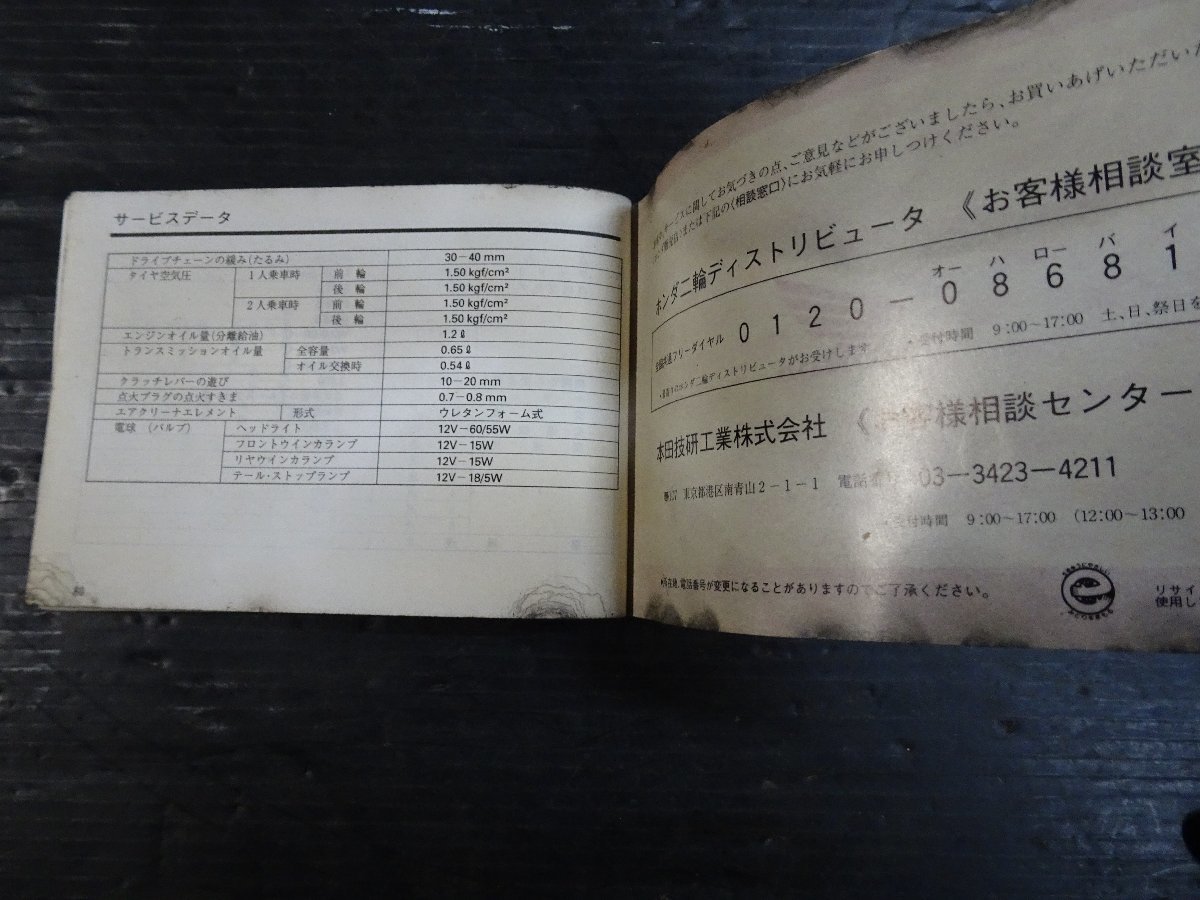 サービスデータ
ドライブチェーンの緩み(たるみ) 30−40 mm
タイヤ空気圧 1人乗車時 前輪 1.50 kgf/cm²
後輪 1.50 kgf/cm²
2人乗車時 前輪 1.50 kgf/cm²
後輪 1.50 kgf/cm²
エンジンオイル量(分離給油) 1.2ℓ
トランスミッションオイル量 全容量 0.65ℓ
オイル交換時 0.54ℓ
クラッチレバーの遊び 10−20 mm
点火プラグの点火すきま 0.7−0.8 mm
エアクリーナエレメント 形式 ウレタンフォーム式
電球 (バルブ) ヘッドライト 12V−60/55W
フロントウインカランプ 12V−15W
リヤウインカランプ 12V−15W
テール・ストップランプ 12V−18/5W
サービスに関してお気づきの点、ご意見などがございましたら、お買いあげいただいた
または下記の〈相談窓口〉にお気軽にお申しつけください。
ホンダ二輪ディストリビュータ 《お客様相談室
オー ハ ロー バ イ
フリーダイヤル 0120−08681
ディストリビュータがお受けします 受付時間 9:00〜17:00 土、日、祭日を
本田技研工業株式会社 《お客様相談センター
東京都港区南青山2−1−1 電話番号 03−3423−4211
受付時間 9:00〜17:00 (12:00〜13:00
所在地、電話番号が変更になることがありますのでご了承ください。
リサイ
使用し